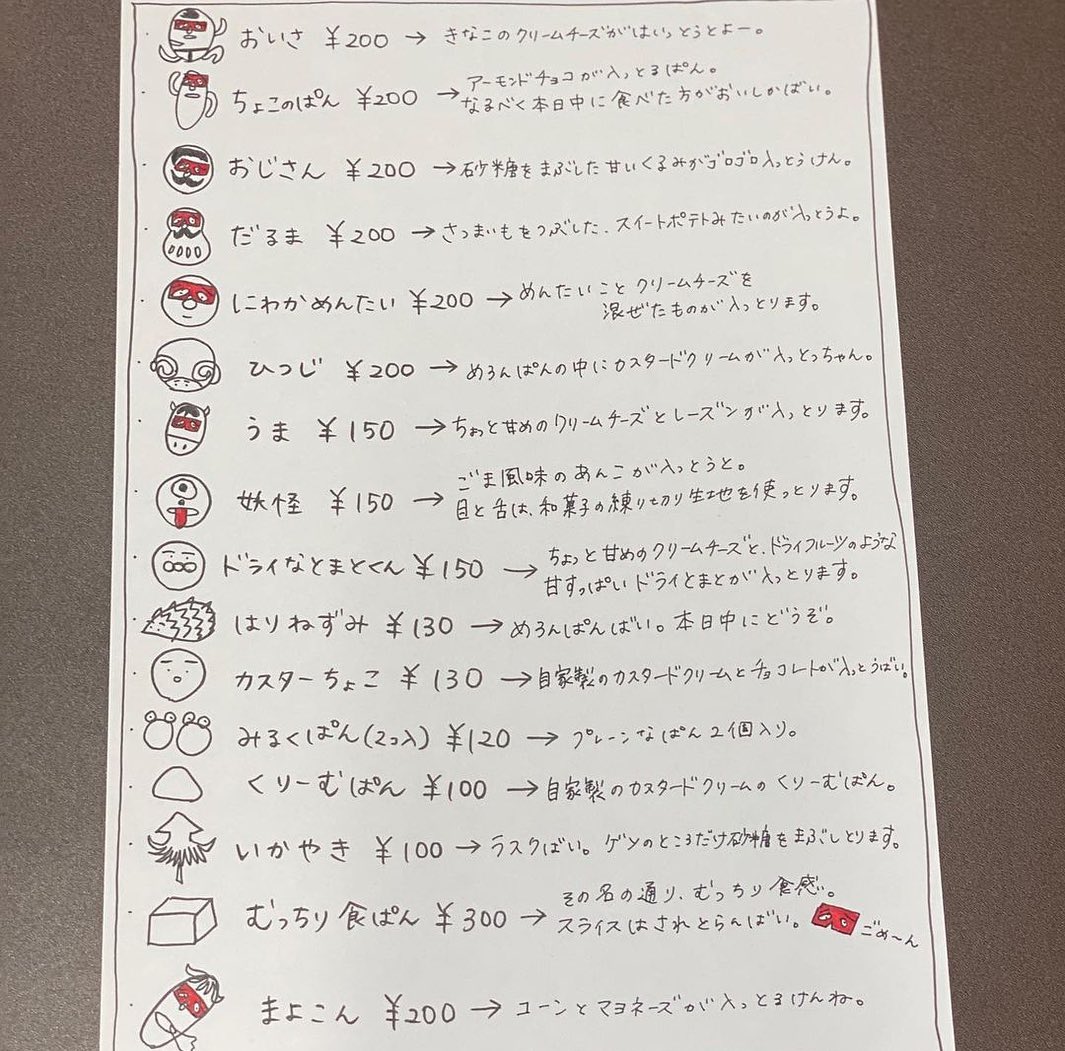 おいさ ¥200 → きなこのクリームチーズがはいっとうとよー。
ちょこのぱん ¥200 → アーモンドチョコが入っとるぱん。
なるべく本日中に食べた方がおいしかばい。
おじさん ¥200 → 砂糖をまぶした甘いくるみがゴロゴロ入っとうけん。
だるま ¥200 → さつまいもをつぶした、スイートポテトみたいのが入っとうよ。
にわかめんたい ¥200 → めんたいこと クリームチーズを
混ぜたものが入っとります。
ひつじ ¥200 → めろんぱんの中にカスタードクリームが入っとっちゃん。
うま ¥150 → ちょっと甘めのクリームチーズとレーズンが入っとります。
妖怪 ¥150 → ごま風味のあんこが入っとうと。
目と舌は、和菓子の練り切り生地を使っとります。
ドライなとまとくん ¥150 → ちょっと甘めのクリームチーズと、ドライフルーツのような
甘すっぱいドライとまとが入っとります。
はりねずみ ¥130 → めろんぱんばい。本日中にどうぞ。
カスターちょこ ¥130 → 自家製のカスタードクリームとチョコレートが入っとうばい。
みるくぱん(2コ入) ¥120 → プレーンなぱん2個入り。
くりーむぱん ¥100 → 自家製のカスタードクリームのくりーむぱん。
いかやき ¥100 → ラスクばい。ゲソのところだけ砂糖をまぶしとります。
むっちり食ぱん ¥300 → その名の通り、むっちり食感。
スライスはされとらんばい。 ごめ〜ん
まよこん ¥200 → コーンとマヨネーズが入っとるけんね。